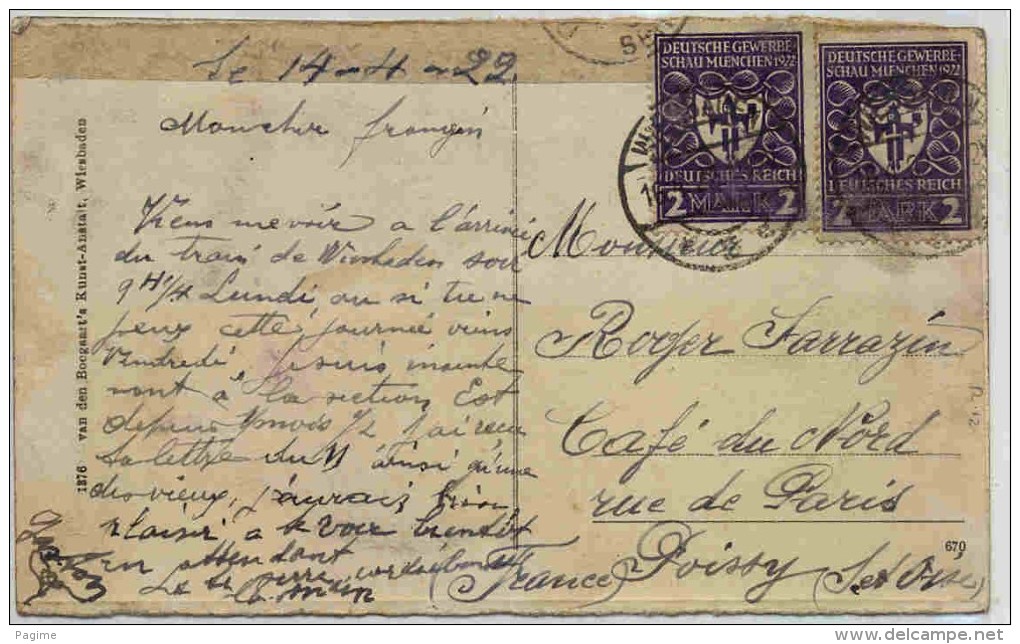 Le 14-4-22
Mon cher françin
Viens me voir a l'arrivé
du train de Wiesbaden soir
9 H 1/4 Lundi ou si tu ne
peux cette journée viens
Vendredi Je suis mainte
nant à la section Est
depuis 1 mois 1/2 J'ai recu
ta lettre du 11 ainsi qu'une
des vieux, j'aurais bien
plaisir a te voir bientôt
en attendant
Monsieur
Roger Sarrazin
Café du Nord
rue de Paris
Poissy (S et Oise)
(France)
1376 van den Boogaart's Kunst-Anstalt, Wiesbaden
670
DEUTSCHE GEWERBE-
SCHAU MUENCHEN 1922
DEUTSCHES REICH
2 MARK 2
DEUTSCHE GEWERBE-
SCHAU MUENCHEN 1922
DEUTSCHES REICH
2 MARK 2
Pagime
www.delcampe.net